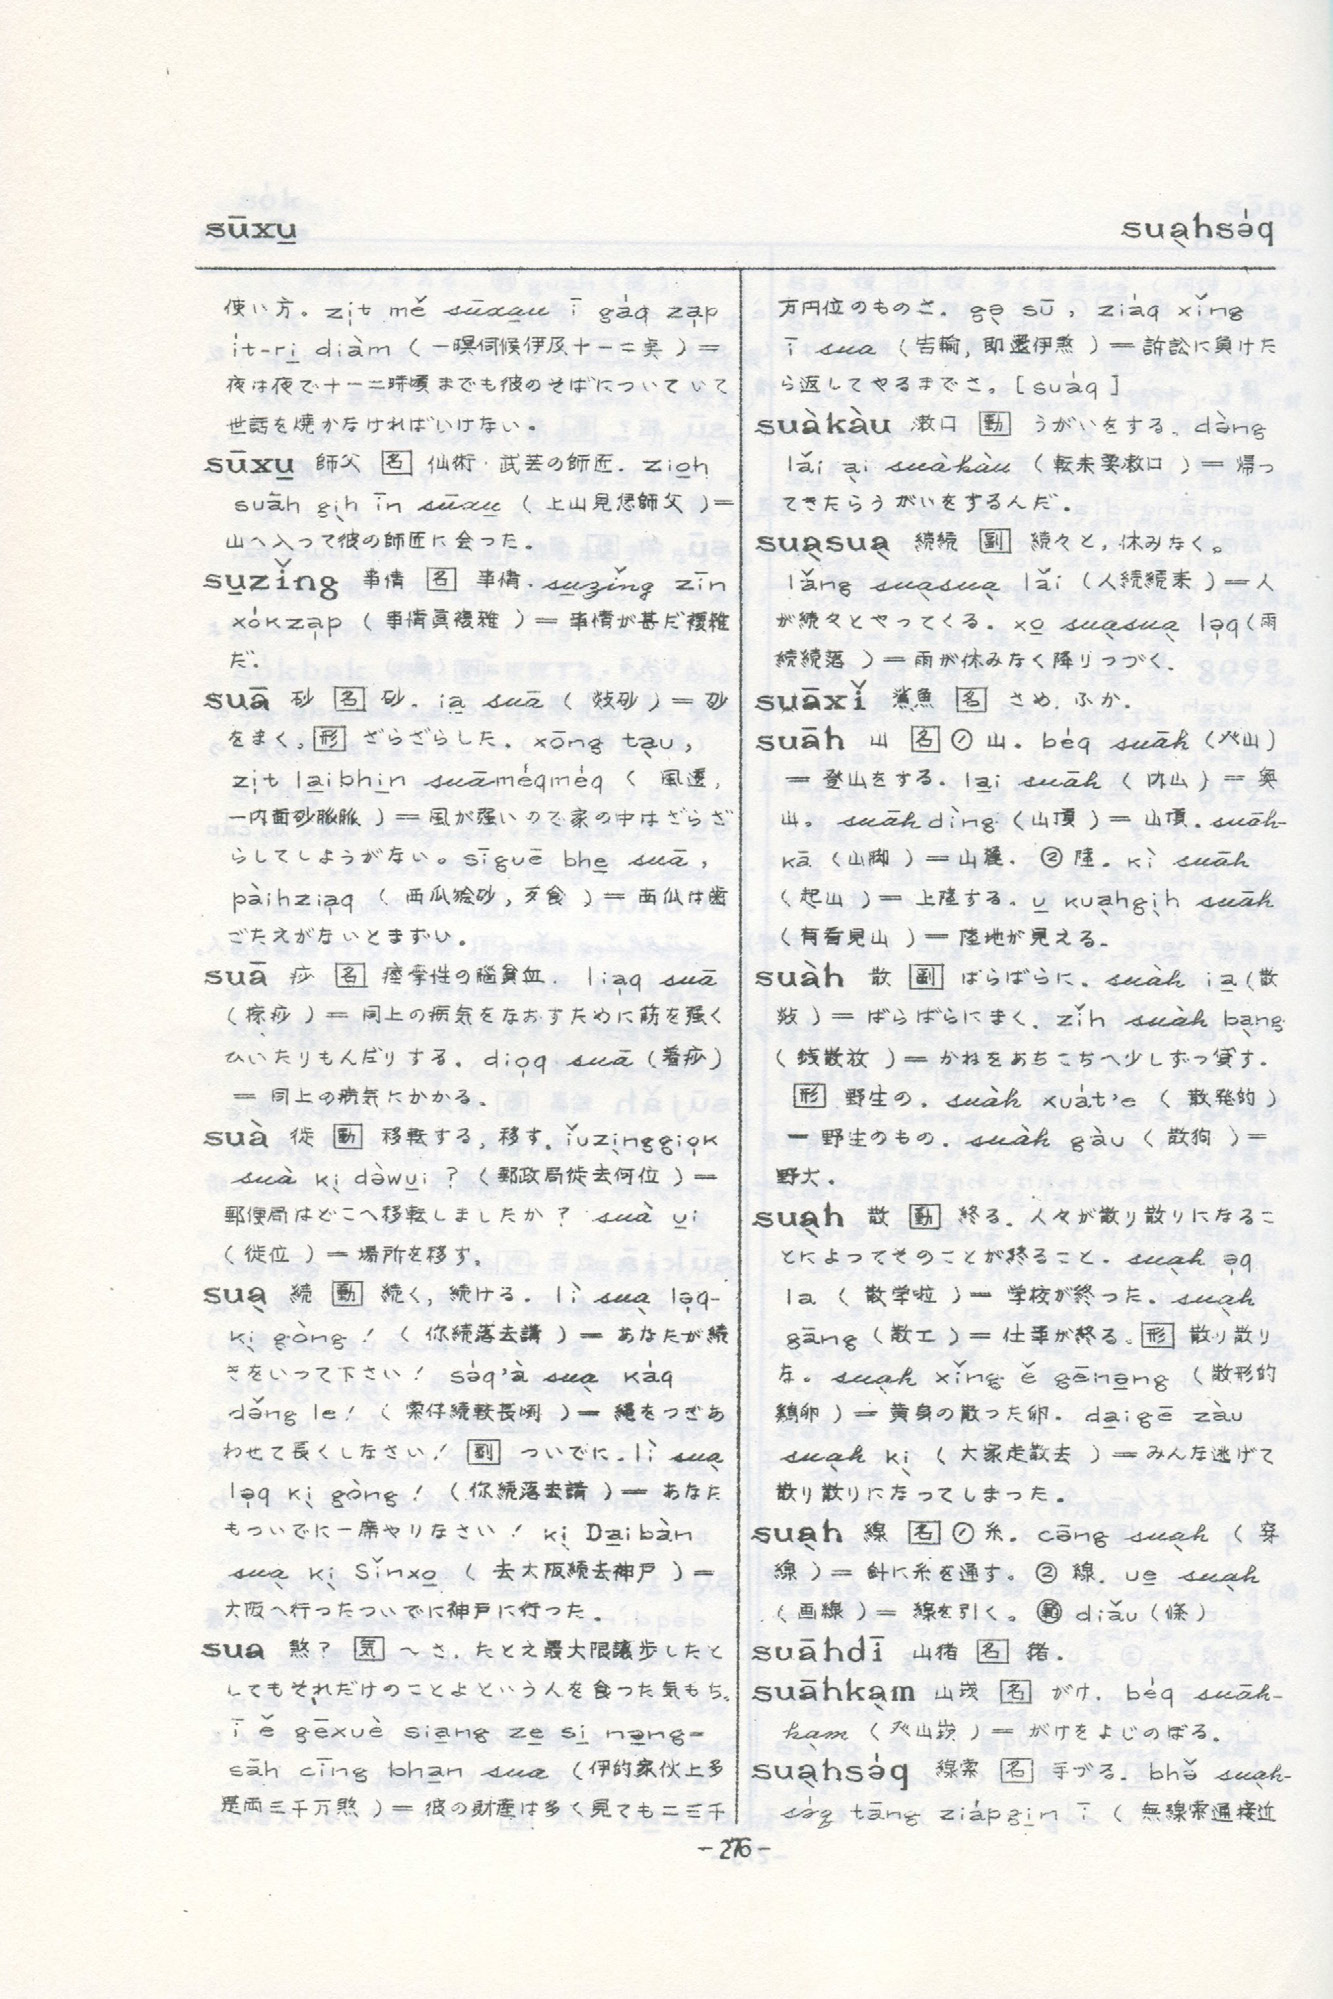 sūxu̱
sua̩hsə̍q
使い方。zi̩t mě sūxau̱ ī ga̍q za̩p
i̍t-ri̱ diàm (一暝伺候伊及十一二奌)＝
夜は夜で十一二時頃までも彼のそばについていて
世話を焼かなければいけない。
sūxu̱ 師父 [名] 仙術・武芸の師匠. zioh
suāh gi̩h īn sūxu̱ (上山見怹師父)＝
山へ入って彼の師匠に会った。
su̱zǐng 事情 [名] 事情. su̱zǐng zīn
xo̍kza̩p (事情真複雑)＝事情が甚だ複雑
だ.
suā 砂 [名] 砂. ia̱ suā (㪚砂)＝砂
をまく, [形] ざらざらした. xōng ta̩u,
zi̩t la̱ibhi̱n suāme̍qme̍q ( 風透,
一内面砂脈脈)＝風が强いので家の中はざらざ
らしてしようがない。sīguē bhe̱ suā,
pàihzia̩q (西瓜獪砂, 歹食)＝西瓜は歯
ごたえがないとまずい。
suā 痧 [名] 痙攣性の脳貧血. lia̩q suā
(掠痧)＝同上の病気をなおすために筋を强く
ひいたりもんだりする。dio̩q suā (着痧)
＝同上の病気にかかる.
suà 徙 [動] 移転する, 移す. ǐuzi̩nggio̩k
suà ki̩ dəwu̱i? (郵政局徙去何位)＝
郵便局はどこへ移転しましたか? suà u̱i
(徙位)＝場所を移す.
sua̩ 続 [動] 続く, 続ける. lì sua̩ lə̩q-
ki̩ gòng! (你続落去講)＝あなたが続
きをいって下さい! sə̍q'à sua̩ ka̍q
də̌ng le! (索仔続較長咧)＝縄をつぎあ
わせて長くしなさい! [副] ついでに. lì sua̩
lə̩q ki̩ gòng! (你続落去講)＝あなた
もついでに一席やりなさい! ki̩ Da̱ibàn
sua̩ ki̩ Sǐnxo̱ (去大阪続去神戸)＝
大阪へ行ったついでに神戸に行った.
sua 煞? [気] 〜さ. たとえ最大限譲歩したと
してもそれだけのことよという人を食った気もち.
ī ě gēxuè siang ze̱ si̱ nəng-
sāh cīng bha̱n sua (伊的家伙上多
是両三千万煞)＝彼の財産は多く見ても二三千
万円位のものさ. gə̩ sū, zia̍q xǐng
ī sua (告輸, 即還伊煞)＝訴訟に負けた
ら返してやるまでさ。[sua̍q]
suàkàu 漱口 [動] うがいをする. dàng
lǎi a̩i suàkàu (転来要漱口)＝帰っ
てきたらうがいをするんだ.
sua̩sua̩ 続続 [副] 続々と, 休みなく。
lǎng sua̩sua̩ lǎi (人続続来)＝人
が続々とやってくる. xo̱ sua̩sua̩ lə̩q(雨
続続落)＝雨が休みなく降りつづく.
suāxǐ 鯊魚 [名] さめ. ふか.
suāh 山 [名] ① 山. be̍q suāh (癶山)
＝登山をする. la̱i suāh (内山)＝奥
山。suāhdìng (山頂)＝山頂. suāh-
kā (山脚)＝山麓. ② 陸。kì suāh
(起山)＝上陸する. u̱ kua̩hgi̩h suāh
(有看見山)＝陸地が見える.
suàh 散 [副] ばらばらに. suàh ia̱(散
㪚)＝ばらばらにまく. zǐh suàh ba̩ng
(銭散放)＝かねをあちこちへ少しずつ貸す.
[形] 野生の. suàh xua̍t'e (散発的)
＝野生のもの. suàh gàu (散狗)＝
野犬.
sua̩h 散 [動] 終る. 人々が散り散りになるこ
とによってそのことが終ること. sua̩h ə̩q
la (散学啦)＝学校が終った. sua̩h
gāng (散工)＝仕事が終る. [形] 散り散り
な。sua̩h xǐng ě gēnə̱ng (散形的
鶏卵)＝黄身の散った卵. da̱igē zàu
sua̩h ki̩ (大家走散去)＝みんな逃げて
散り散りになってしまった.
sua̩h 線 [名] ① 糸. cōng sua̩h (穿
線)＝針に糸を通す. ② 線. ue̱ sua̩h
(画線)＝線を引く。㊐ diǎu(條)
suāhdī 山猪 [名] 猪.
suāhka̩m 山崁 [名] がけ. be̍q suāh-
ka̩m (癶山崁)＝がけをよじのぼる.
sua̩hsə̍q 線索 [名] 手づる. bhə̌ sua̩h-
sə̍q tāng zia̍pgi̱n ī (無線索通接近
-276-